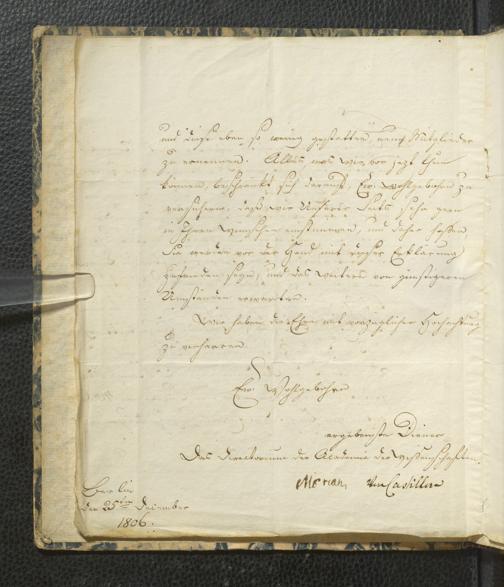 und diese eben so wenig gestatten, neue Mitglieder
zu ernennen. Alles was wir vor jetzt thun
können, beschränkt sich darauf, Ew. Wohlgebohrn zu
versichern, daß wir Unserer Seits sehr gern
in Ihren Wunsch einstimmen, und daher hoffen
Sie werden vor der Hand mit dieser Erklärung
zufrieden seyn, und das Weitere von günstigeren
Umständen erwarten.
Wir haben die Ehre mit vorzüglicher Hochachtung
zu verharren
Ew. Wohlgebohrn
ergebenste Diener
Das Directorium der Academie der Wissenschaften.
Merian, Castillon
Berlin
den 25ten December
1806.